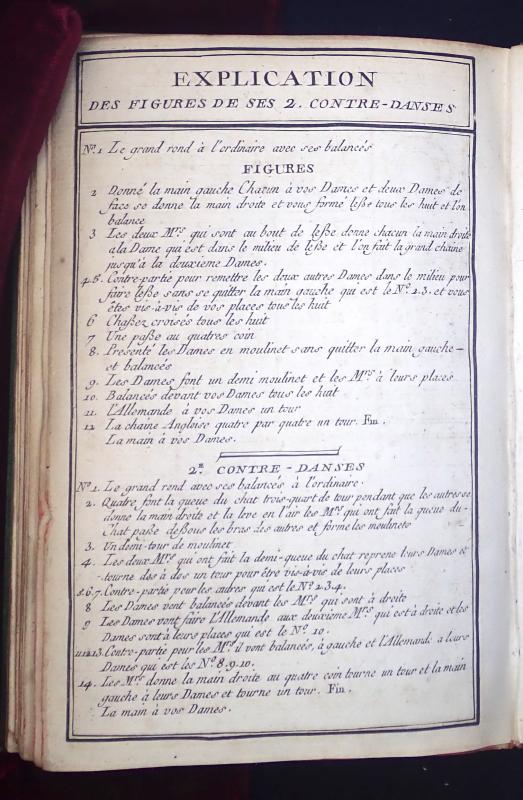 EXPLICATION
DES FIGURES DE SES 2. CONTRE-DANSES
Nº.1 Le grand rond à l'ordinaire avec ses balancés
FIGURES
2 Donné la main gauche Chacun à vos Dames et deux Dames de
face se donne la main droite et vous formé lesse tous les huit et l'on
balance
3 Les deux Mrs qui sont au bout de lesse donne chacun la main droite
a la Dame qui est dans le milieu de lesse et l'on fait la grand chaine
jusqu'à la deuxieme Dames.
4.5. Contre-partie pour remettre les deux autres Dames dans le milieu pour
faire lesse sans se quitter la main gauche qui est le Nº. 2.3. et vous
êtes vis-à-vis de vos places tous les huit
6 Chassez croisés tous les huit
7 Une passe au quatres coin
8. Presenté les Dames en moulinet sans quitter la main gauche-
et balancés
9. Les Dames font un demi moulinet et les Mrs à leurs places
10. Balancés devant vos Dames tous les huit
11. l'Allemande à vos Dames un tour
12 La chaine Angloise quatre par quatre un tour. Fin.
La main à vos Dames.
2.e CONTRE-DANSES
Nº1. Le grand rond avec ses balancés à l'ordinaire.
2. Quatre font la queue du chat trois-quart de tour pendant que les autres se
donne la main droite et la leve en l'air les Mrs qui ont fait la queue du-
Chat passe dessous les bras des autres et forme les moulinets
3. Un demi-tour de moulinet
4. Les deux Mrs qui ont fait la demi-queue du chat reprene leurs Dames et
tourne dos à dos un tour pour être vis-à-vis de leurs places
5.6.7. Contre-partie pour les autres qui est le Nº 2.3.4.
8 Les Dames vont balancés devant les Mrs qui sont à droite
9 Les Dames vont faire l'Allemande aux deuxieme Mrs qui est à droite et les
Dames sont à leurs places qui est le Nº. 10.
11.12.13. Contre-partie pour les Mrs il vont balancés, à gauche et l'Allemande a leurs
Dames qui est les Nº 8.9.10.
14. Les Mrs donne la main droite au quatre coin tourne un tour et la main
gauche à leurs Dames et tourne un tour. Fin.
La main à vos Dames.